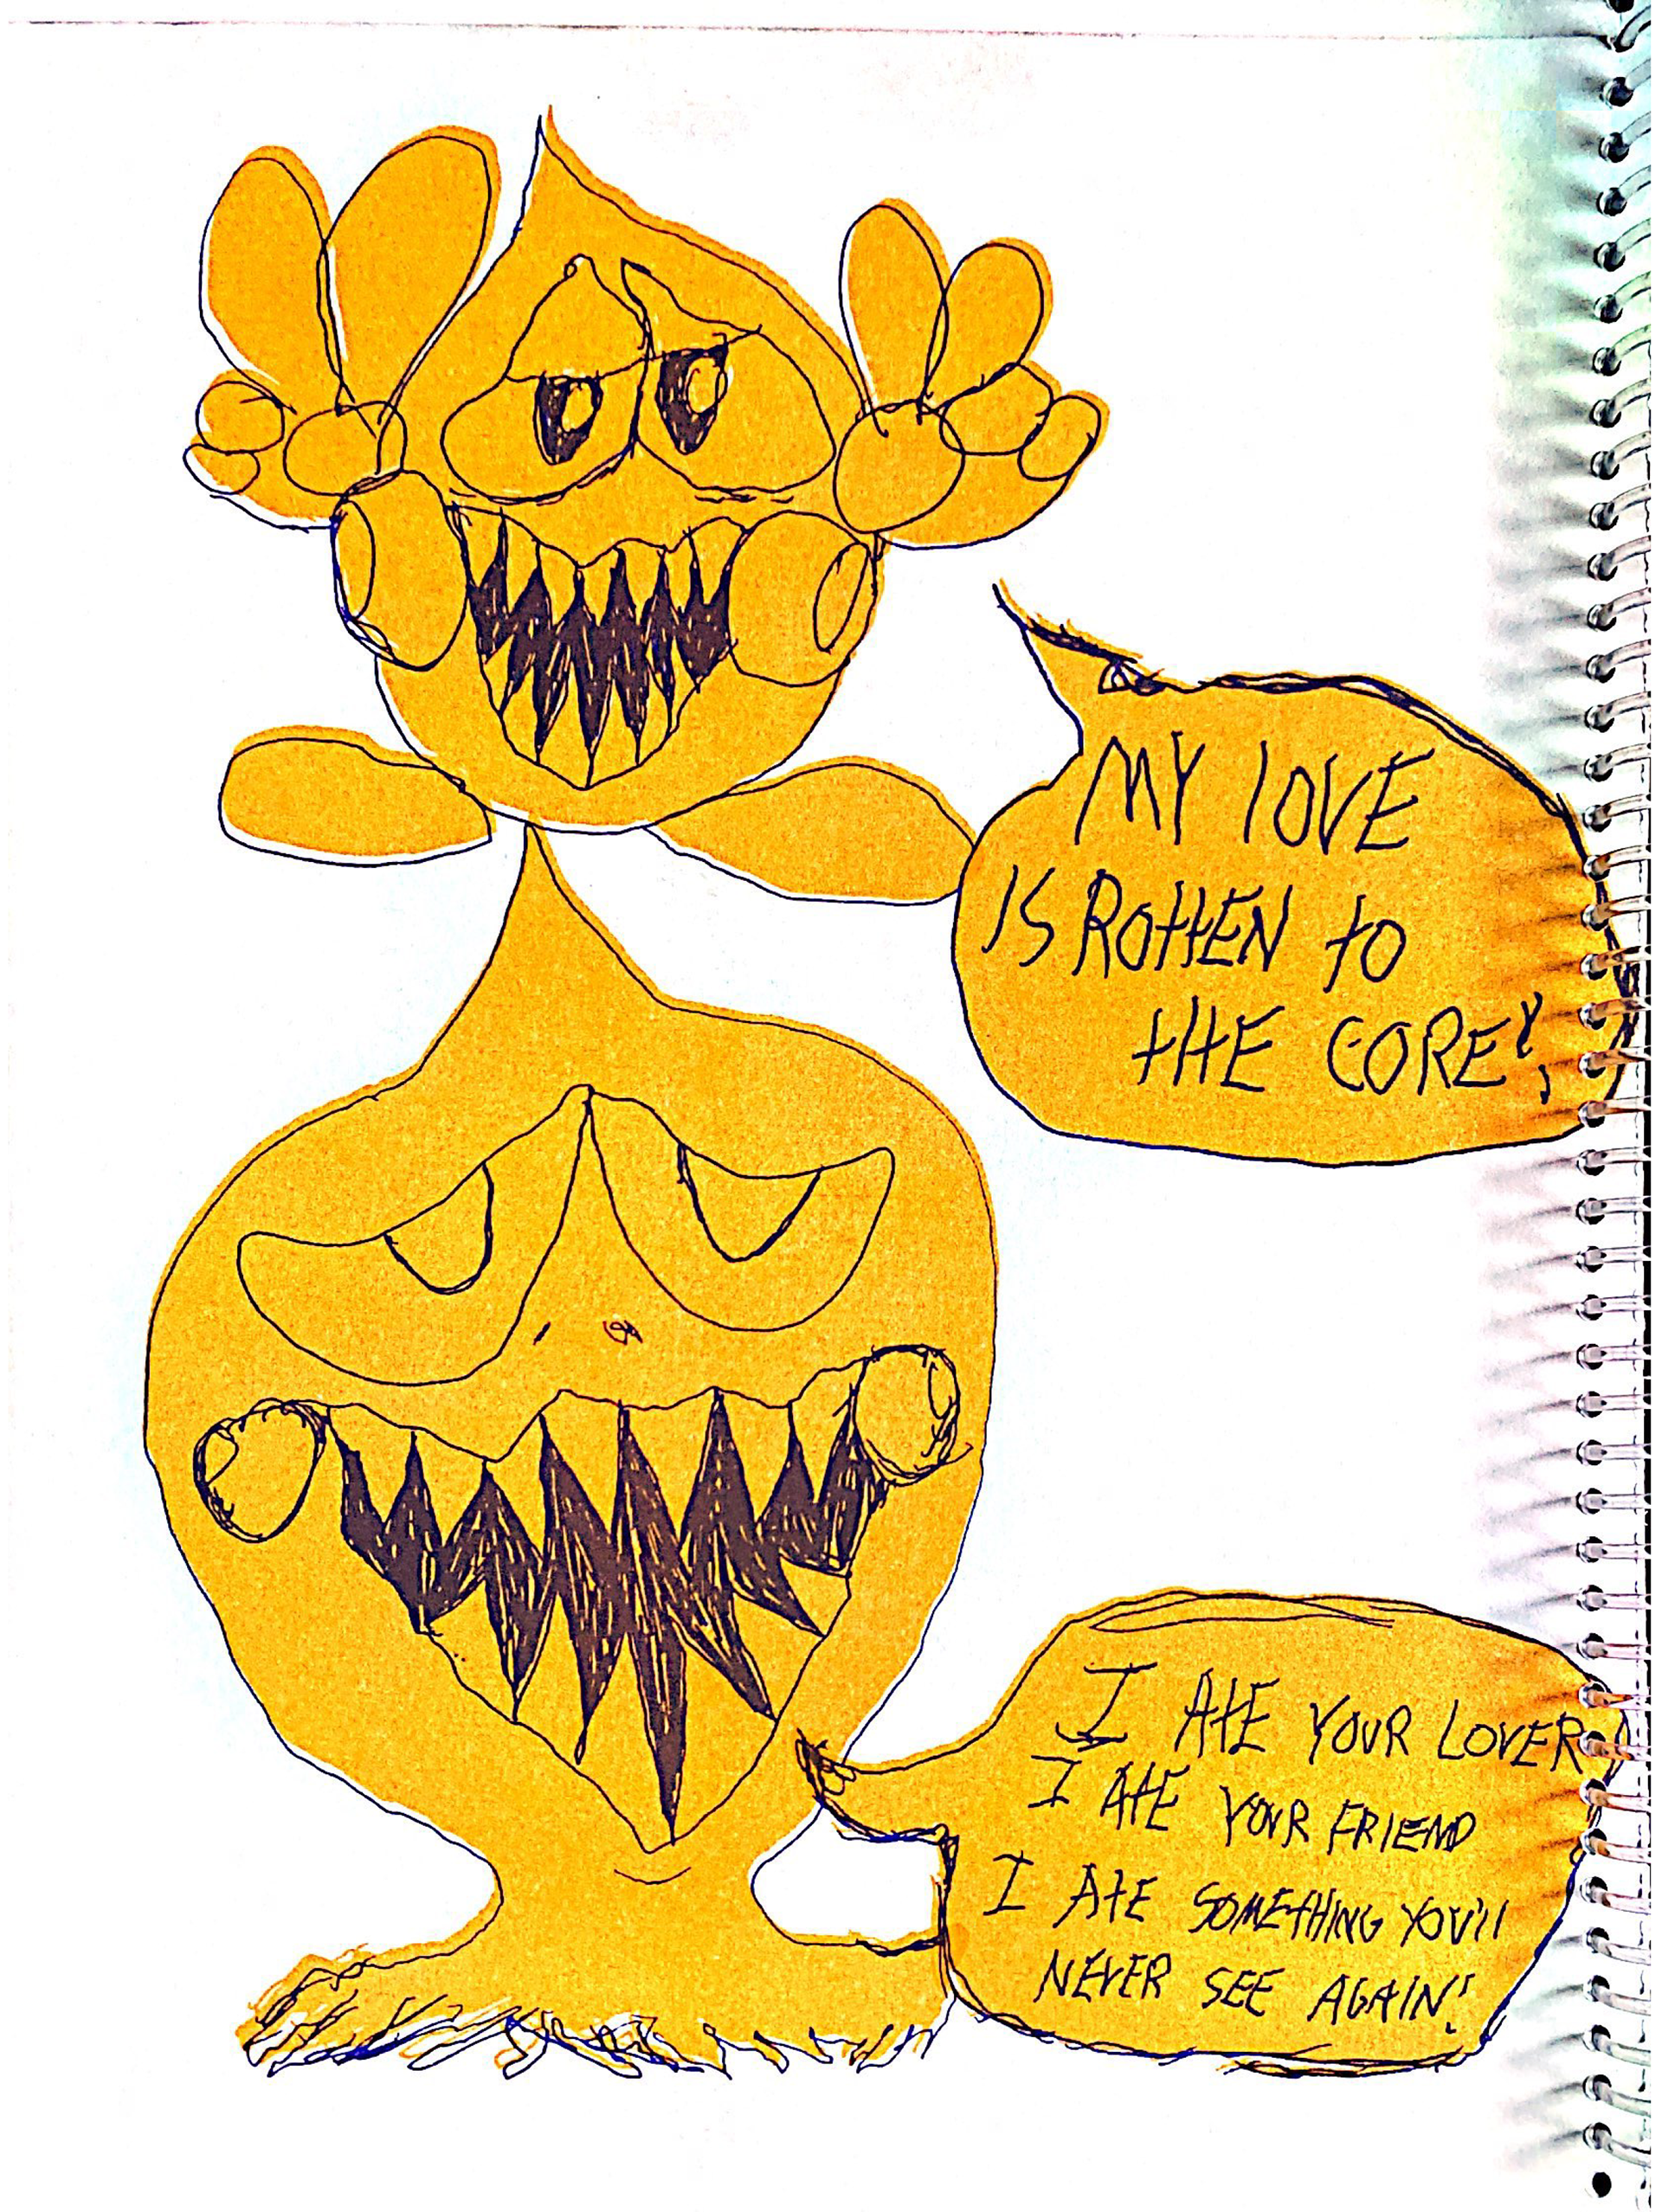 MY LOVE
IS ROTTEN TO
THE CORE!
I ATE YOUR LOVER
I ATE YOUR FRIEND
I ATE SOMETHING YOU'll
NEVER SEE AGAIN!